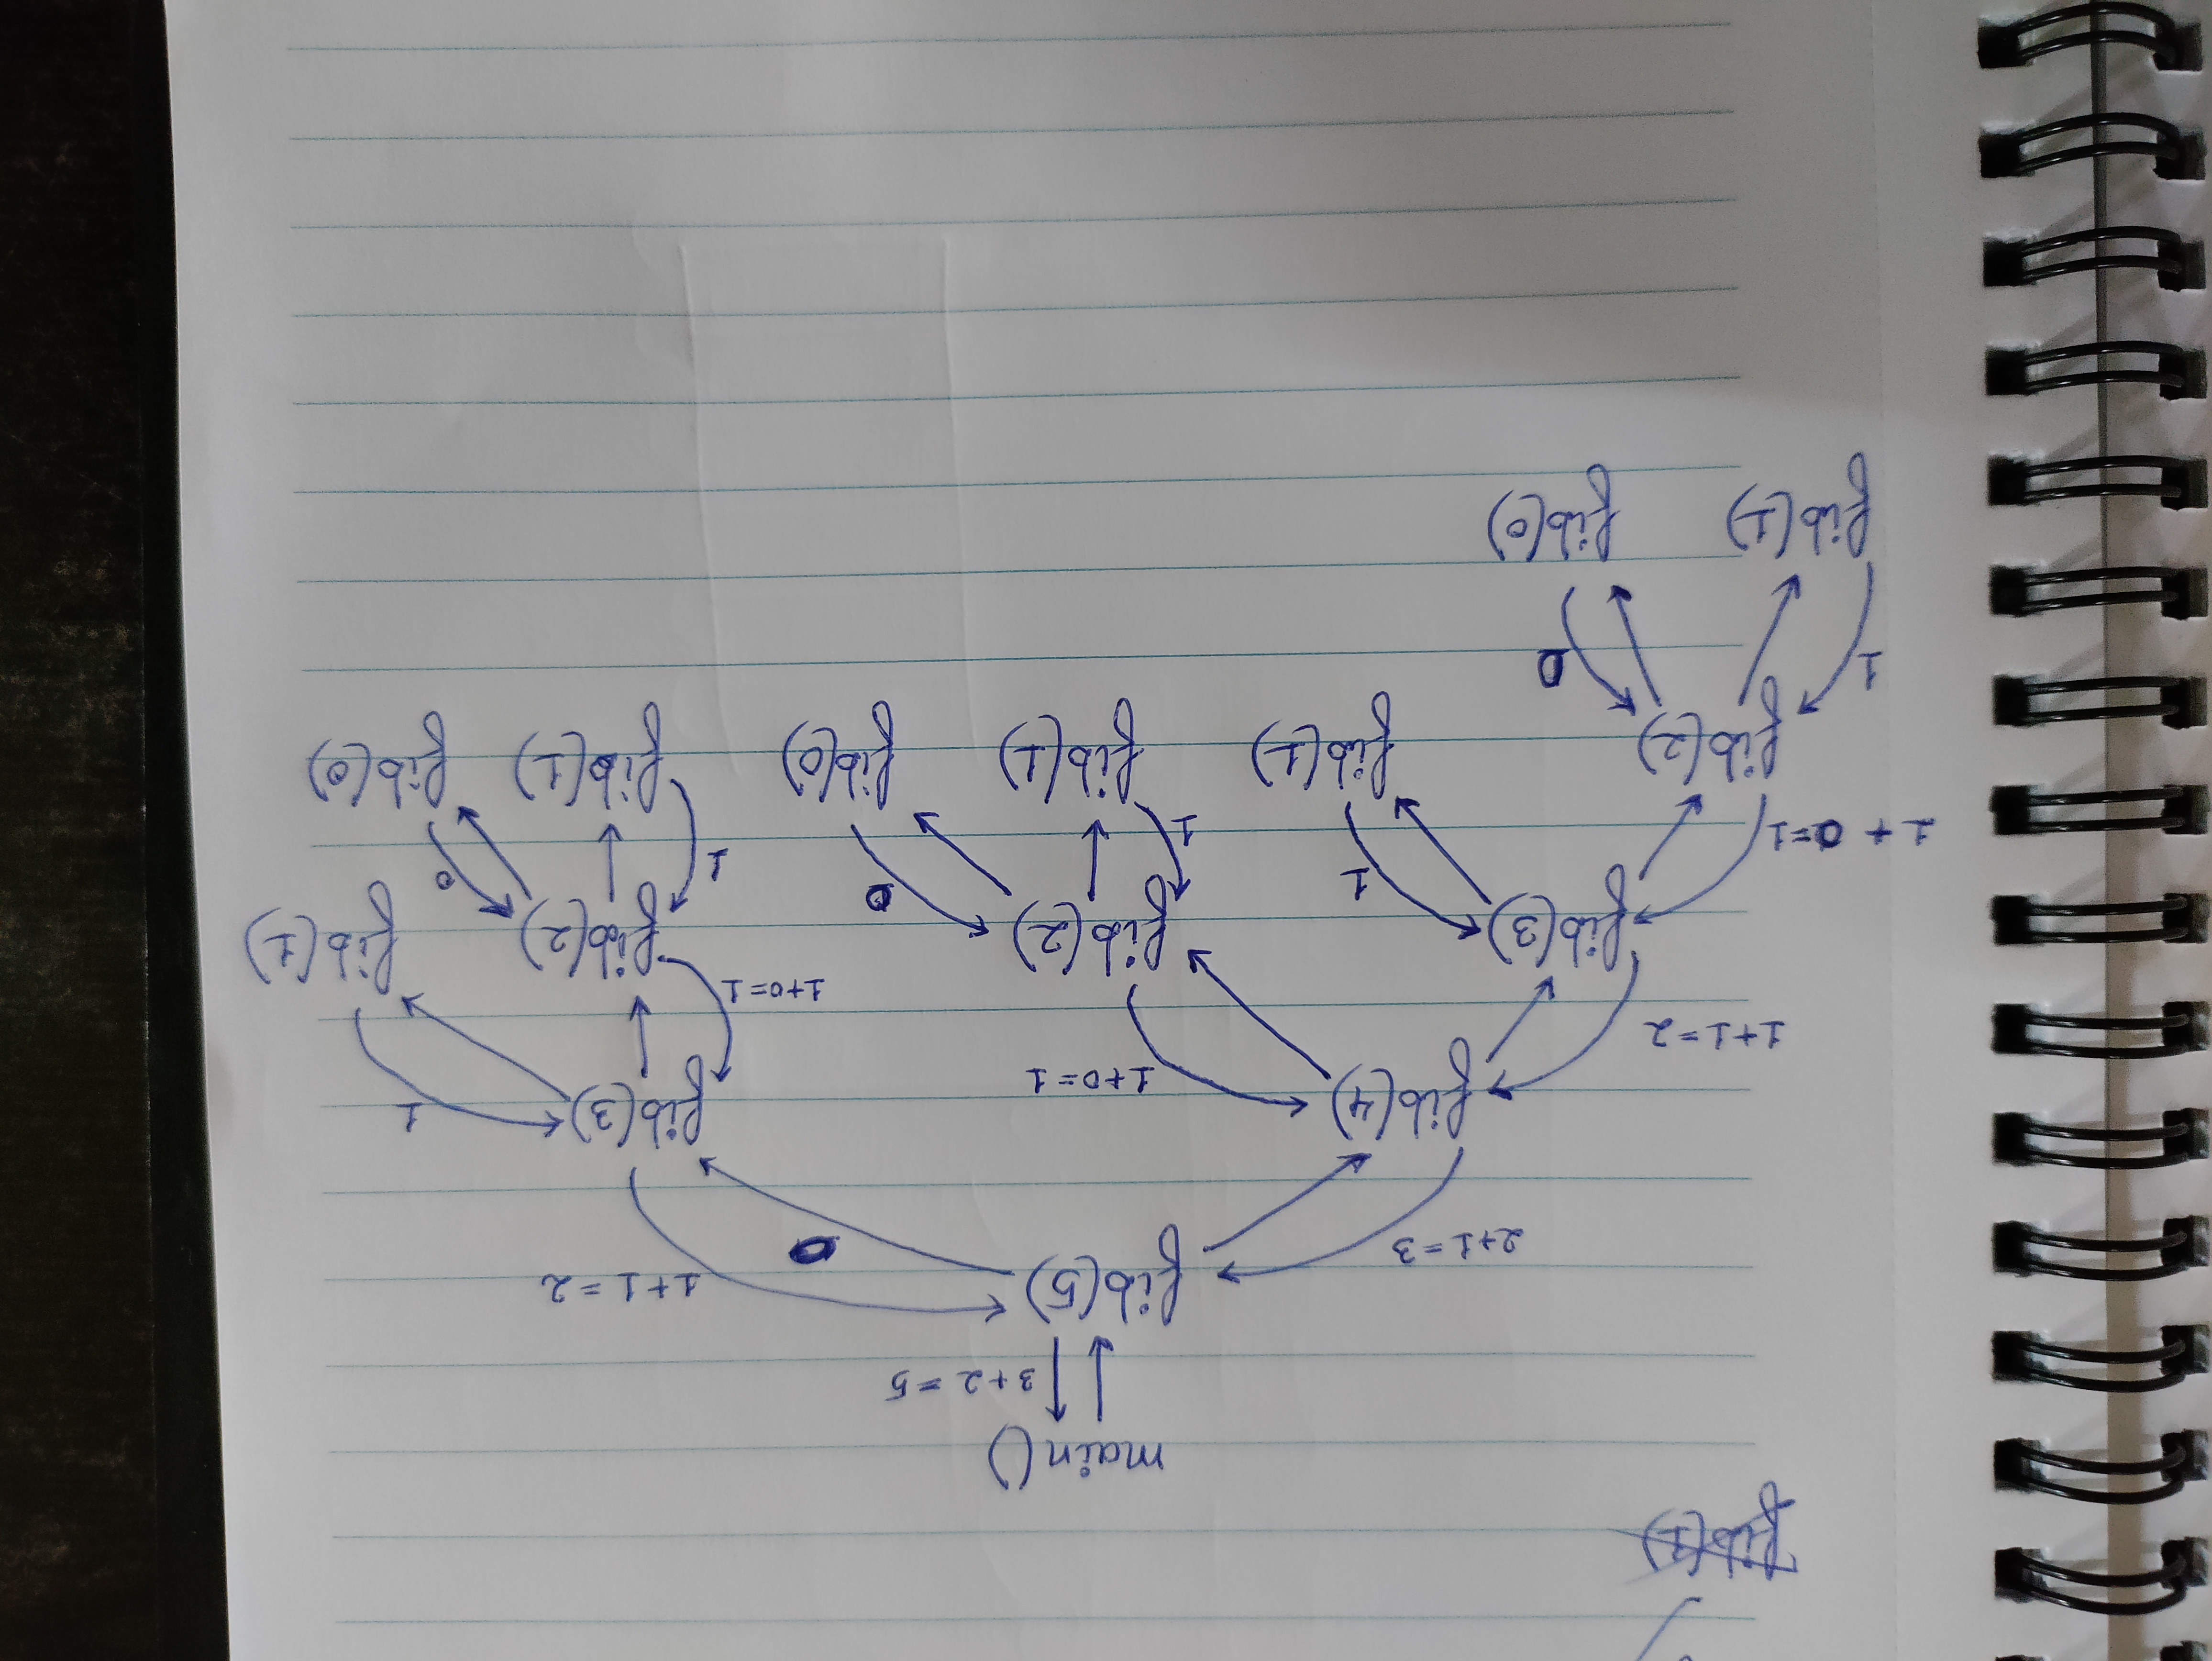 fib(1)
main()
3+2=5
fib(5)
1+1=2
2+1=3
0
fib(4)
fib(3)
1
1+0=1
1+1=2
1+0=1
fib(3)
fib(2)
fib(2)
fib(1)
1 + 0=1
1
1
0
1
0
fib(2)
fib(1)
fib(1)
fib(0)
fib(1)
fib(0)
1
0
fib(1)
fib(0)